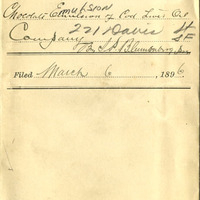 EMULSION
Chocolate Emulsion of Cod Liver Oil
Company 221 Davis St
S F
By S. Blumenberg, Jr
Filed March 6 1896.